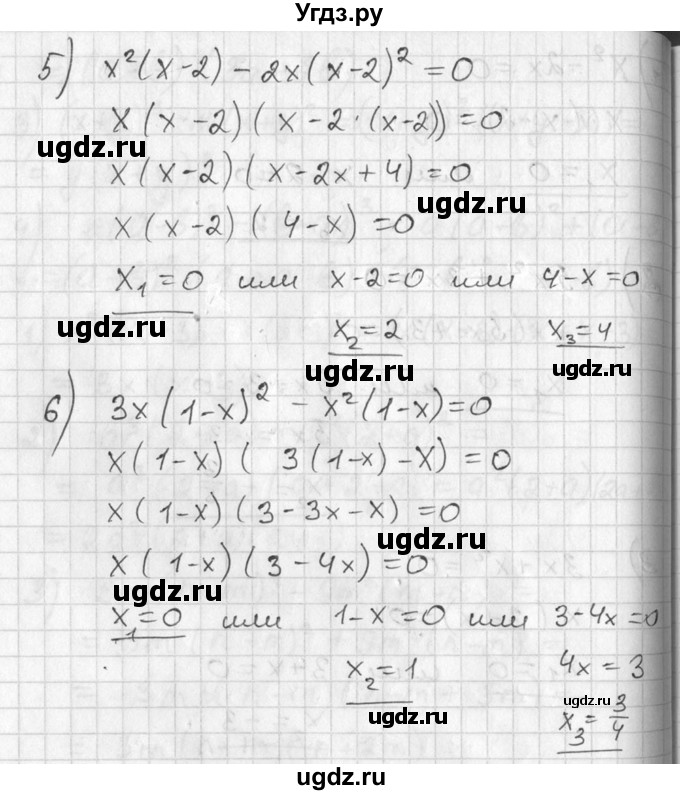 Угдз.ру
5) x²(x-2) - 2x(x-2)² = 0
x(x-2)(x-2·(x-2)) = 0
ugdz.ru
x(x-2)(x-2x+4) = 0
ugdz.ru
x(x-2)(4-x) = 0
x₁ = 0 или x-2=0 или 4-x=0
ugdz.ru
x₂ = 2 x₃ = 4
ugdz.ru
ugdz.ru
6) 3x(1-x)² - x²(1-x) = 0
ugdz.ru
x(1-x)(3(1-x)-x) = 0
x(1-x)(3-3x-x) = 0
ugdz.ru
ugdz.ru
x(1-x)(3-4x) = 0
x₁ = 0 или 1-x=0 или 3-4x=0
ugdz.ru
x₂ = 1 4x = 3
ugdz.ru
ugdz.ru
x₃ = 3/4
ugdz.ru